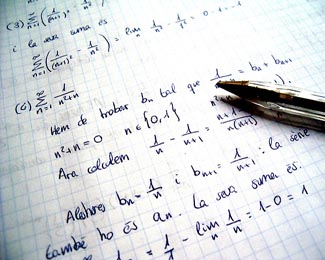 (3) ∞∑n=1 (1/(n+1)² - 1/n²)
i la seva suma és
∞∑n=1 (1/(n+1)² - 1/n²) = lim 1/n² - 1/1² = 0 - 1 = -1
(4) ∞∑n=1 1/n²+n
Hem de trobar bn tal que = bn + bn+1
n²+n=0 n∈{0,1}
Ara calculem 1/n - 1/n+1 = n+1 /n(n+1)
Alehores bn = 1/n i bn+1 = 1/n+1 : la sèrie
també ho és an. La seva suma és.
= 1/1 - lim 1/n = 1-0 = 1